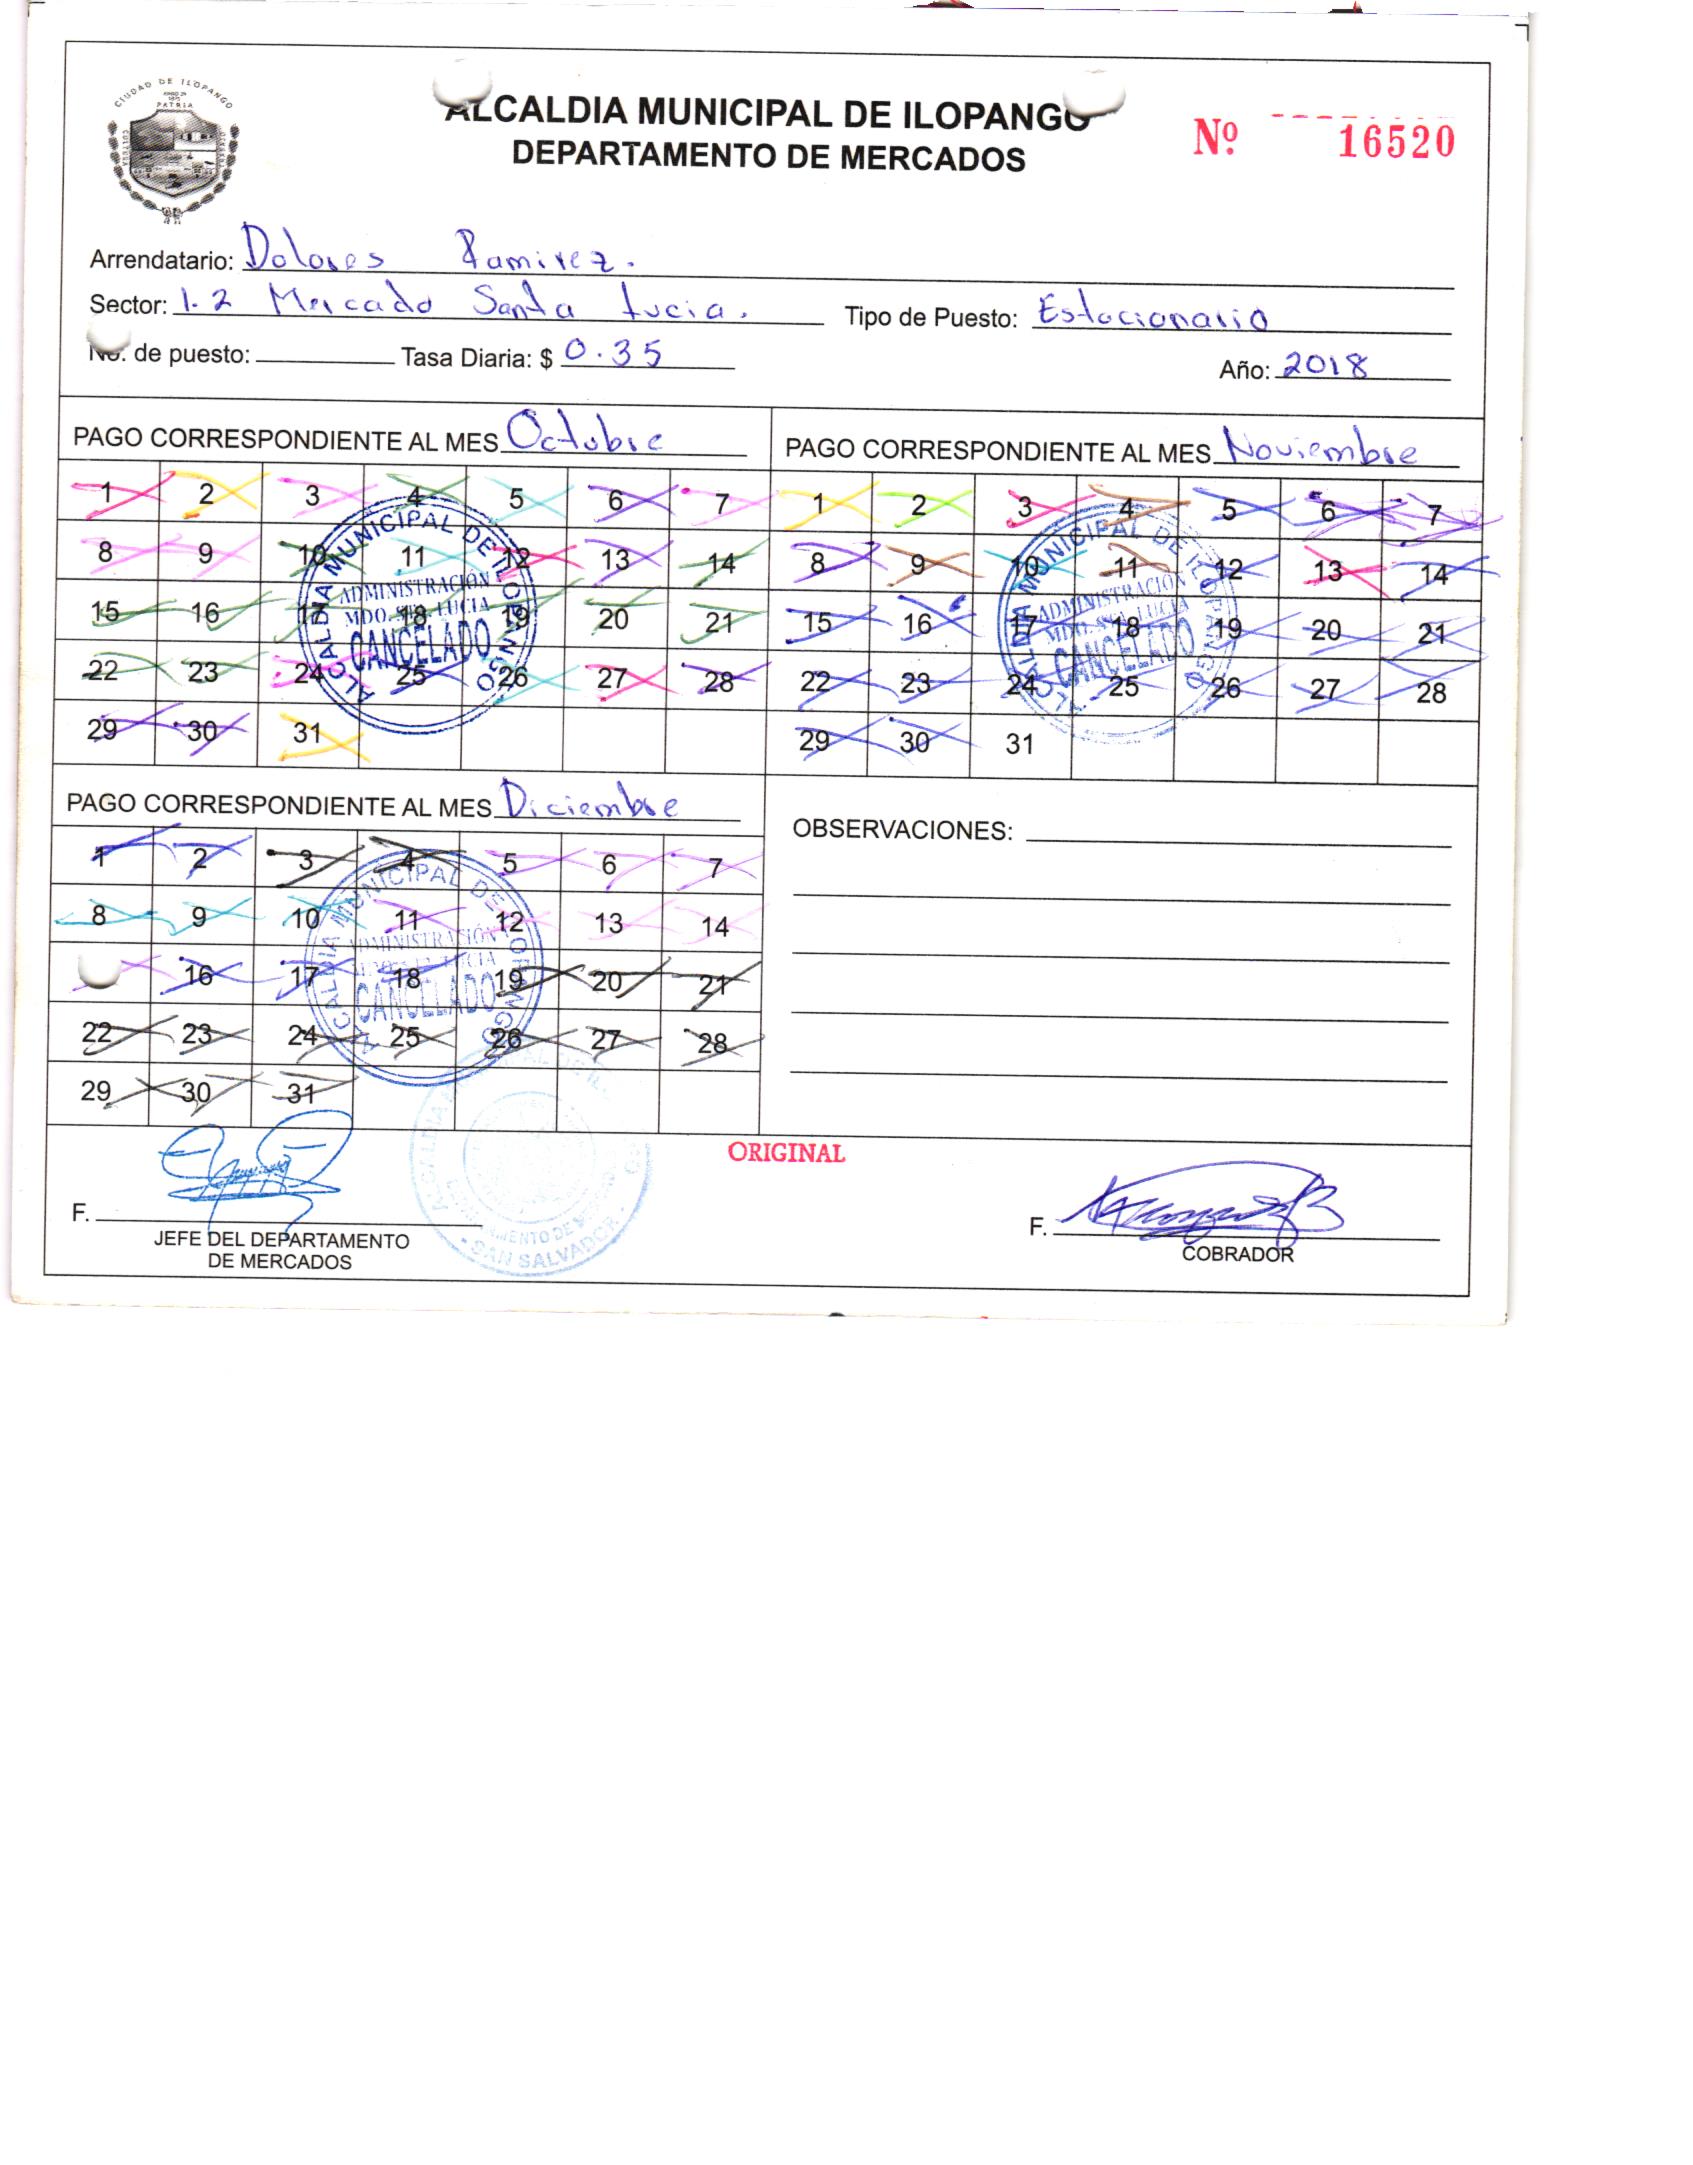 CIUDAD DE ILOPANGO
PATRIA
ALCALDIA MUNICIPAL DE ILOPANGO
DEPARTAMENTO DE MERCADOS
Nº 16520
Arrendatario: Dolores Ramirez.
Sector: 1.2 Mercado Santa Lucia. Tipo de Puesto: Estacionario
No. de puesto: Tasa Diaria: $ 0.35 Año: 2018
PAGO CORRESPONDIENTE AL MES Octubre
1 2 3 4 5 6 7
8 9 10 11 12 13 14
15 16 17 18 19 20 21
22 23 24 25 26 27 28
29 30 31
ALCALDIA MUNICIPAL DE ILOPANGO
ADMINISTRACIÓN
MDO. STA. LUCIA
CANCELADO
PAGO CORRESPONDIENTE AL MES Noviembre
1 2 3 4 5 6 7
8 9 10 11 12 13 14
15 16 17 18 19 20 21
22 23 24 25 26 27 28
29 30 31
ALCALDIA MUNICIPAL DE ILOPANGO
ADMINISTRACIÓN
MDO. STA. LUCIA
CANCELADO
PAGO CORRESPONDIENTE AL MES Diciembre
1 2 3 4 5 6 7
8 9 10 11 12 13 14
16 17 18 19 20 21
22 23 24 25 26 27 28
29 30 31
ALCALDIA MUNICIPAL DE ILOPANGO
ADMINISTRACIÓN
MDO. STA. LUCIA
CANCELADO
OBSERVACIONES:
ORIGINAL
SAN SALVADOR
F.
JEFE DEL DEPARTAMENTO
DE MERCADOS
F.
COBRADOR